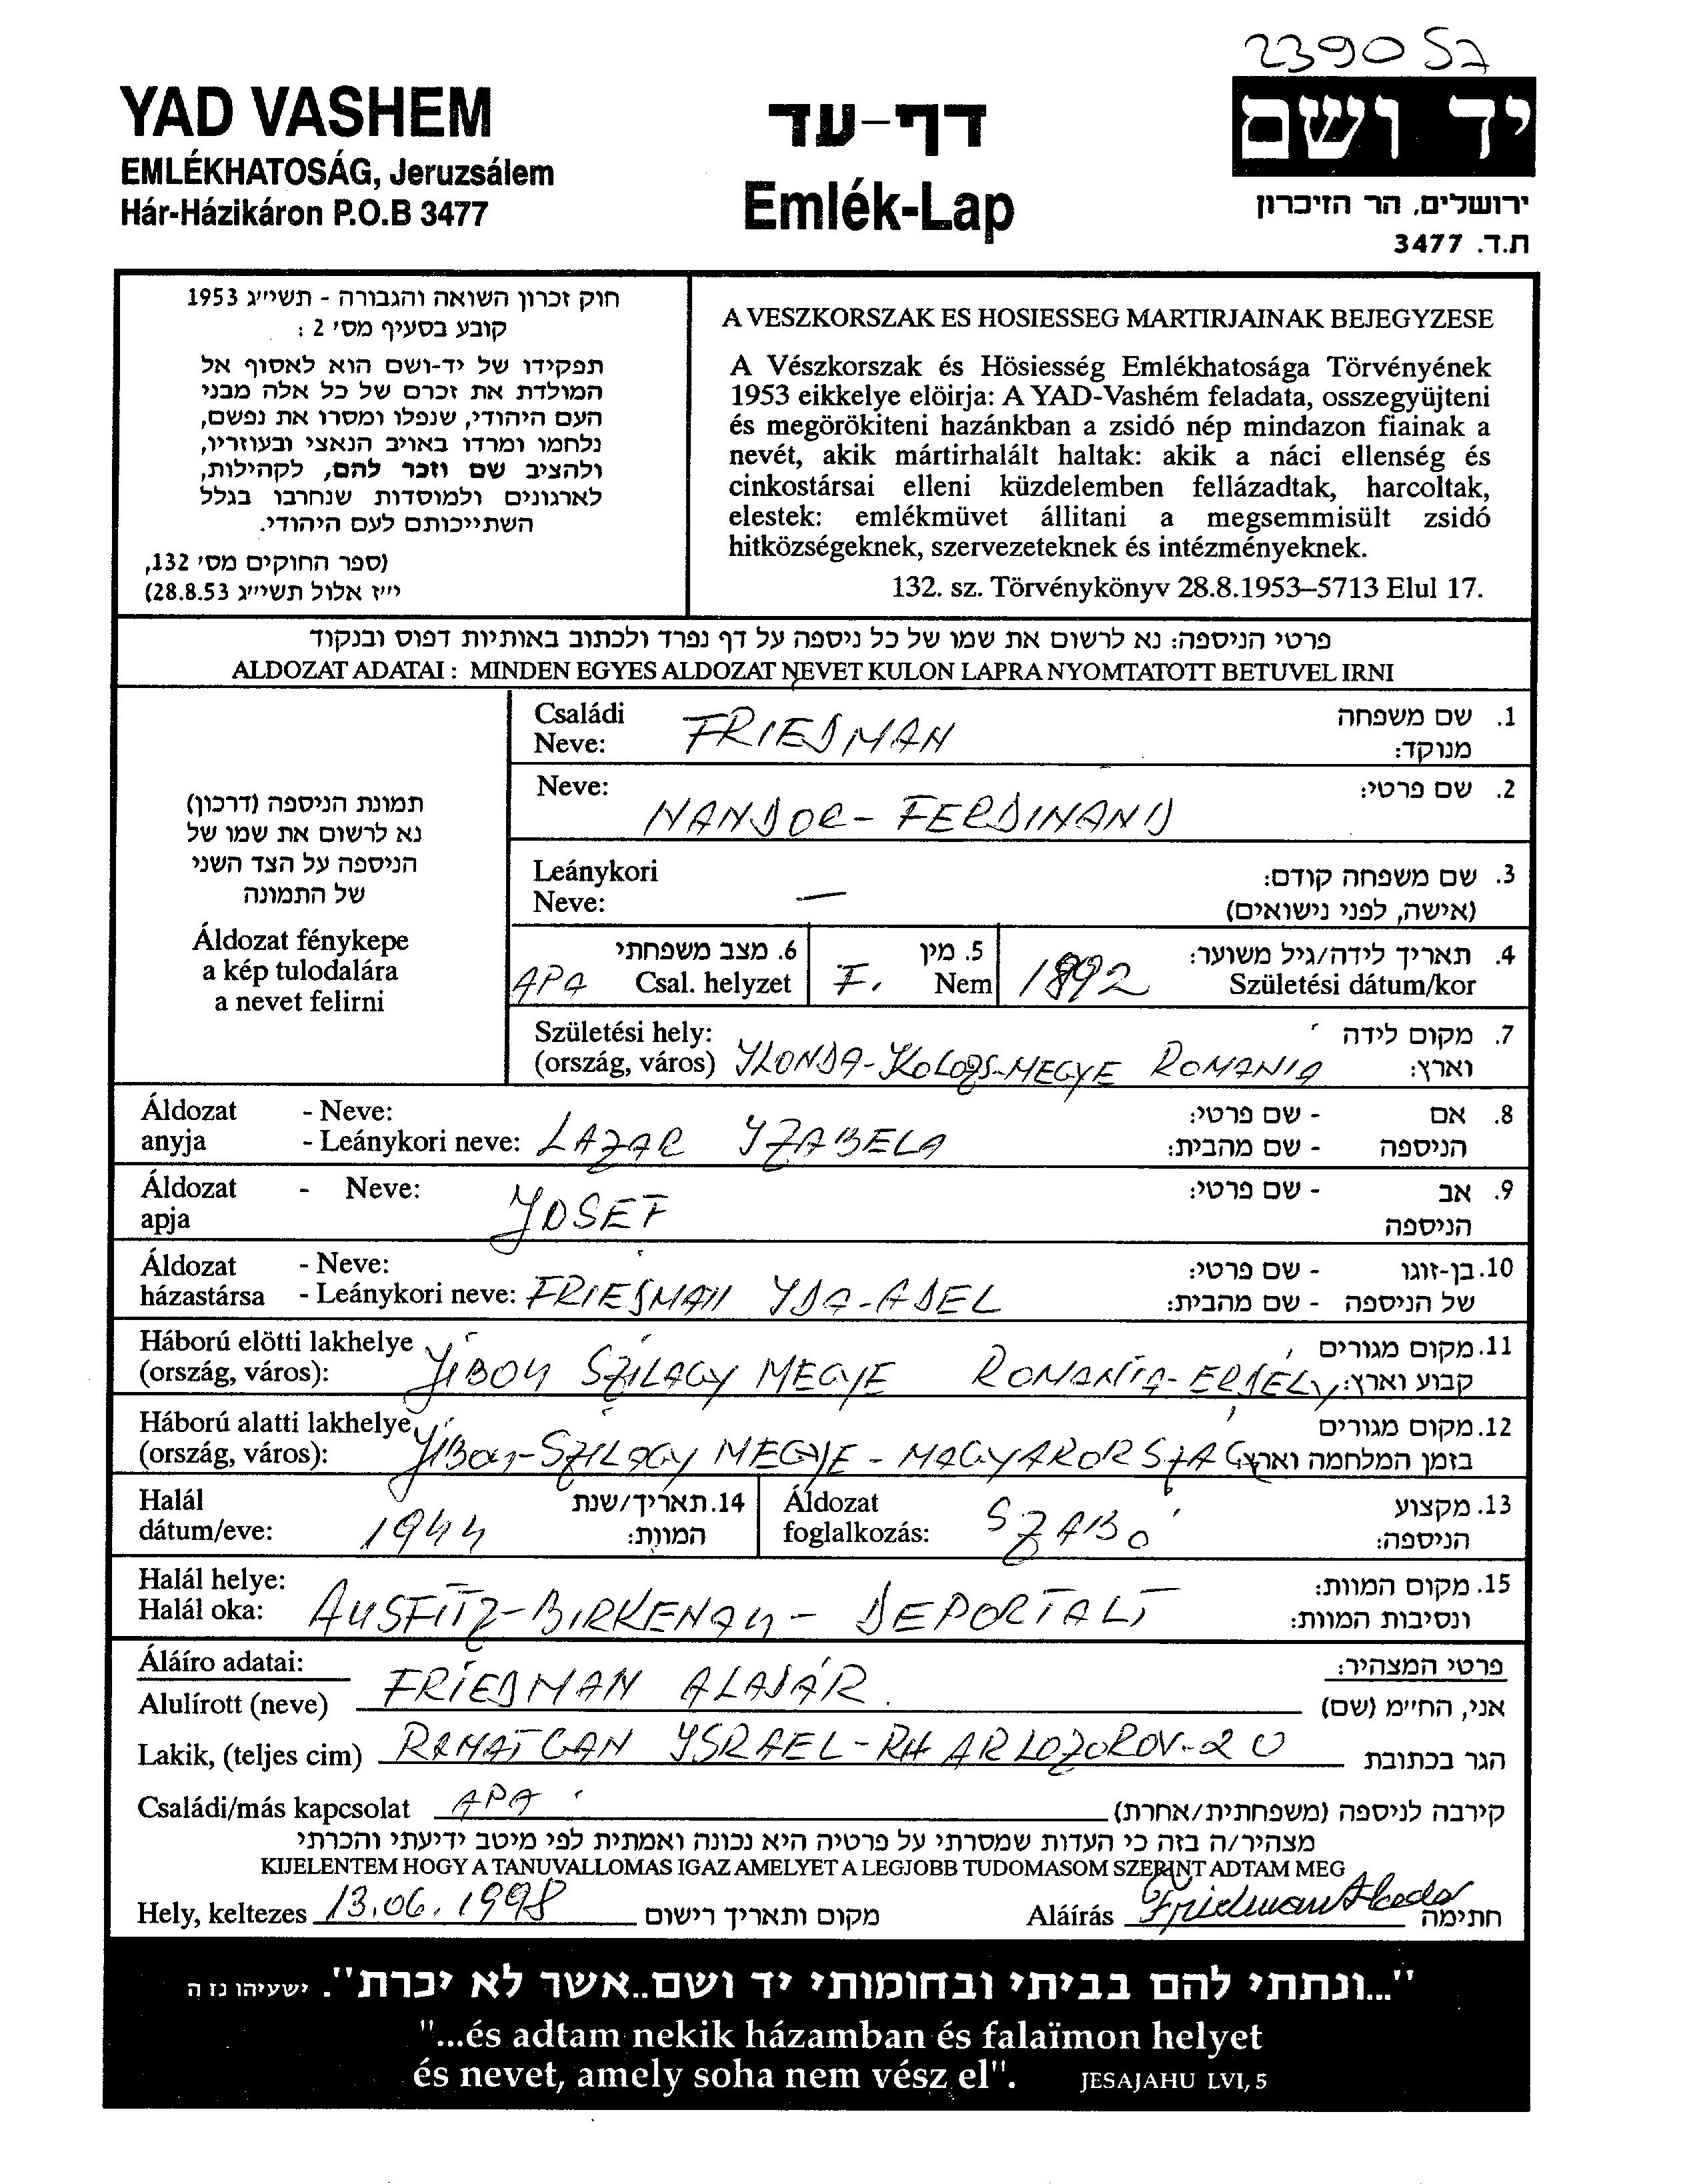 239057
YAD VASHEM
EMLÉKHATOSÁG, Jeruzsálem
Hár-Házikáron P.O.B 3477
דף-עד
Emlék-Lap
יד ושם
ירושלים, הר הזיכרון
ת.ד. 3477
חוק זכרון השואה והגבורה - תשי״ג 1953
קובע בסעיף מס׳ 2 :
תפקידו של יד-ושם הוא לאסוף אל
המולדת את זכרם של כל אלה מבני
העם היהודי, שנפלו ומסרו את נפשם,
נלחמו ומרדו באויב הנאצי ובעוזריו,
ולהציב שם וזכר להם, לקהילות,
לארגונים ולמוסדות שנחרבו בגלל
השתייכותם לעם היהודי.
(ספר החוקים מס׳ 132,
י״ז אלול תשי״ג 28.8.53)
A VESZKORSZAK ES HOSIESSEG MARTIRJAINAK BEJEGYZESE
A Vészkorszak és Hösiesség Emlékhatosága Törvényének
1953 eikkelye elöirja: A YAD-Vashém feladata, osszegyüjteni
és megörökiteni hazánkban a zsidó nép mindazon fiainak a
nevét, akik mártirhalált haltak: akik a náci ellenség és
cinkostársai elleni küzdelemben fellázadtak, harcoltak,
elestek: emlékmüvet állitani a megsemmisült zsidó
hitközségeknek, szervezeteknek és intézményeknek.
132. sz. Törvénykönyv 28.8.1953–5713 Elul 17.
פרטי הניספה: נא לרשום את שמו של כל ניספה על דף נפרד ולכתוב באותיות דפוס ובנקוד
ALDOZAT ADATAI : MINDEN EGYES ALDOZAT NEVET KULON LAPRA NYOMTATOTT BETUVEL IRNI
תמונת הניספה (דרכון)
נא לרשום את שמו של
הניספה על הצד השני
של התמונה
Áldozat fénykepe
a kép tulodalára
a nevet felirni
Családi
Neve: FRIEDMAN 1. שם משפחה
מנוקד:
Neve: NANDOR - FERDINAND 2. שם פרטי:
Leánykori
Neve: — 3. שם משפחה קודם:
(אישה, לפני נישואים)
6. מצב משפחתי 5. מין 4. תאריך לידה/גיל משוער:
APA Csal. helyzet F. Nem 1892 Születési dátum/kor
Születési hely: 7. מקום לידה
(ország, város) YKONDA-KOLOZS-MEGYE ROMANIA וארץ:
Áldozat - Neve: 8. אם - שם פרטי:
anyja - Leánykori neve: LAZAR YZABELA הניספה - שם מהבית:
Áldozat - Neve: 9. אב - שם פרטי:
apja YOSEF הניספה
Áldozat - Neve: 10. בן-זוגו - שם פרטי:
házastársa - Leánykori neve: FRIEDMAN YDA-ADEL של הניספה - שם מהבית:
Háború elötti lakhelye 11. מקום מגורים
(ország, város): JIBOU SZILAGY MEGYE ROMANIA-ERDELY קבוע וארץ:
Háború alatti lakhelye 12. מקום מגורים
(ország, város): JIBOU-SZILAGY MEGYE - MAGYARORSZAG בזמן המלחמה וארץ
Halál 14. תאריך/שנת Áldozat 13. מקצוע
dátum/eve: 1944 המוות: foglalkozás: SZABÓ הניספה:
Halál helye: 15. מקום המוות:
Halál oka: AUSFITZ-BIRKENAU - DEPORTALT ונסיבות המוות:
Áláíro adatai: פרטי המצהיר:
Alulírott (neve) FRIEDMAN ALADÁR. אני, הח״מ (שם)
Lakik, (teljes cim) RAMATGAN YSRAEL-RH ARLOZOROV-20 הגר בכתובת
Családi/más kapcsolat APA קירבה לניספה (משפחתית/אחרת)
מצהיר/ה בזה כי העדות שמסרתי על פרטיה היא נכונה ואמתית לפי מיטב ידיעתי והכרתי
KIJELENTEM HOGY A TANUVALLOMAS IGAZ AMELYET A LEGJOBB TUDOMASOM SZERINT ADTAM MEG
Hely, keltezes 13.06.1998 מקום ותאריך רישום Aláírás Friedman Aladar חתימה
"...ונתתי להם בביתי ובחומותי יד ושם..אשר לא יכרת". ישעיהו נז ה
"...és adtam nekik házamban és falaïmon helyet
és nevet, amely soha nem vész el". JESAJAHU LVI, 5